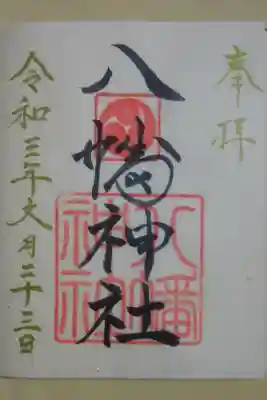 奉拝
八幡神社
八幡
神社
令和三年六月二十三日